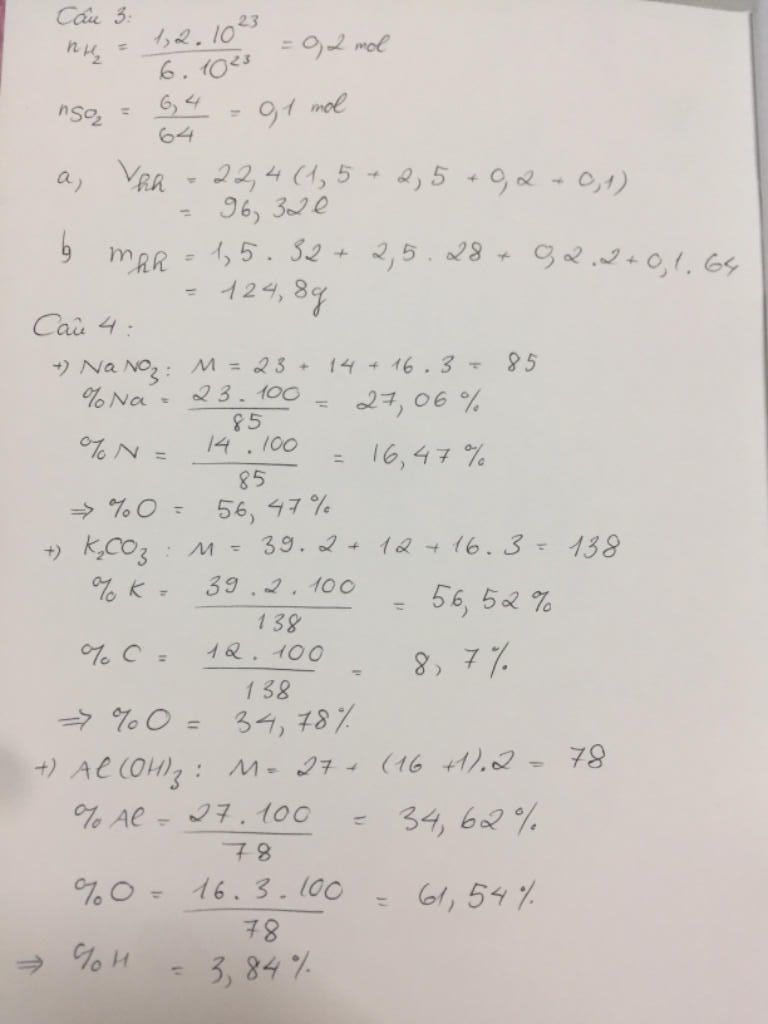 Câu 3:
nH₂ = 1,2 . 10²³ / 6 . 10²³ = 0,2 mol
nSO₂ = 6,4 / 64 = 0,1 mol
a, Vhh = 22,4 (1,5 + 2,5 + 0,2 + 0,1)
= 96,32l
b mhh = 1,5 . 32 + 2,5 . 28 + 0,2 . 2 + 0,1 . 64
= 124,8g
Câu 4 :
+) NaNO₃ : M = 23 + 14 + 16 . 3 = 85
%Na = 23 . 100 / 85 = 27,06 %
%N = 14 . 100 / 85 = 16,47 %
⇒ %O = 56,47%
+) K₂CO₃ : M = 39 . 2 + 12 + 16 . 3 = 138
%K = 39 . 2 . 100 / 138 = 56,52 %
%C = 12 . 100 / 138 = 8,7%
⇒ %O = 34,78%
+) Al(OH)₃ : M = 27 + (16 + 1) . 2 = 78
%Al = 27 . 100 / 78 = 34,62 %
%O = 16 . 3 . 100 / 78 = 61,54 %
⇒ %H = 3,84 %